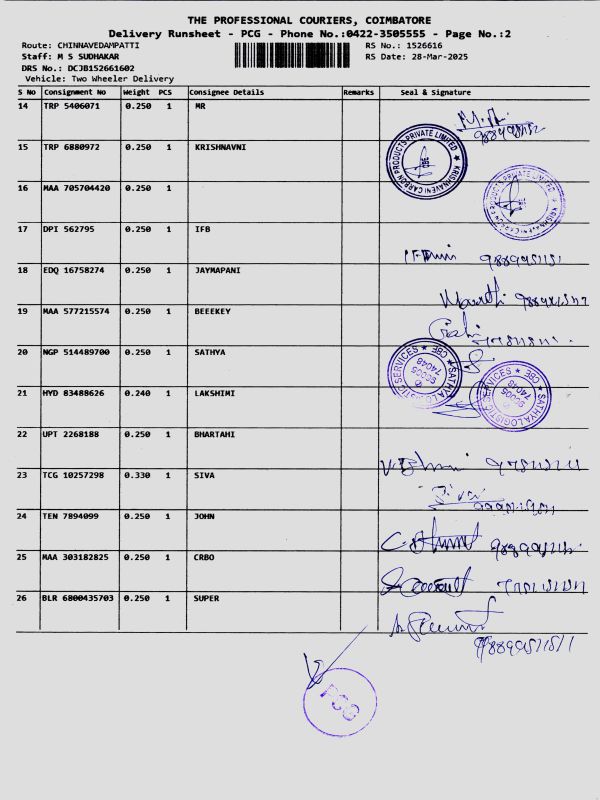 THE PROFESSIONAL COURIERS, COIMBATORE
Delivery Runsheet - PCG - Phone No.:0422-3505555 - Page No.:2
Route: CHINNAVEDAMPATTI RS No.: 1526616
Staff: M S SUDHAKAR RS Date: 28-Mar-2025
DRS No.: DCJB152661602
Vehicle: Two Wheeler Delivery
S No Consignment No Weight PCS Consignee Details Remarks Seal & Signature
14 TRP 5406071 0.250 1 MR
15 TRP 6880972 0.250 1 KRISHNAVNI
KRISHNAVENI CARBON PRODUCTS PRIVATE LIMITED
CBE
16 MAA 705704420 0.250 1
KRISHNAVENI CARBON PRODUCTS PRIVATE LIMITED
17 DPI 562795 0.250 1 IFB
18 EDQ 16758274 0.250 1 JAYMAPANI
19 MAA 577215574 0.250 1 BEEEKEY
20 NGP 514489700 0.250 1 SATHYA
SATHYA LOGISTIC SERVICES CBE
98005
74048
21 HYD 83488626 0.240 1 LAKSHIMI
SATHYA LOGISTIC SERVICES CBE
98005
74048
22 UPT 2268188 0.250 1 BHARTAHI
23 TCG 10257298 0.330 1 SIVA
24 TEN 7894099 0.250 1 JOHN
25 MAA 303182825 0.250 1 CRBO
26 BLR 6800435703 0.250 1 SUPER
PCG